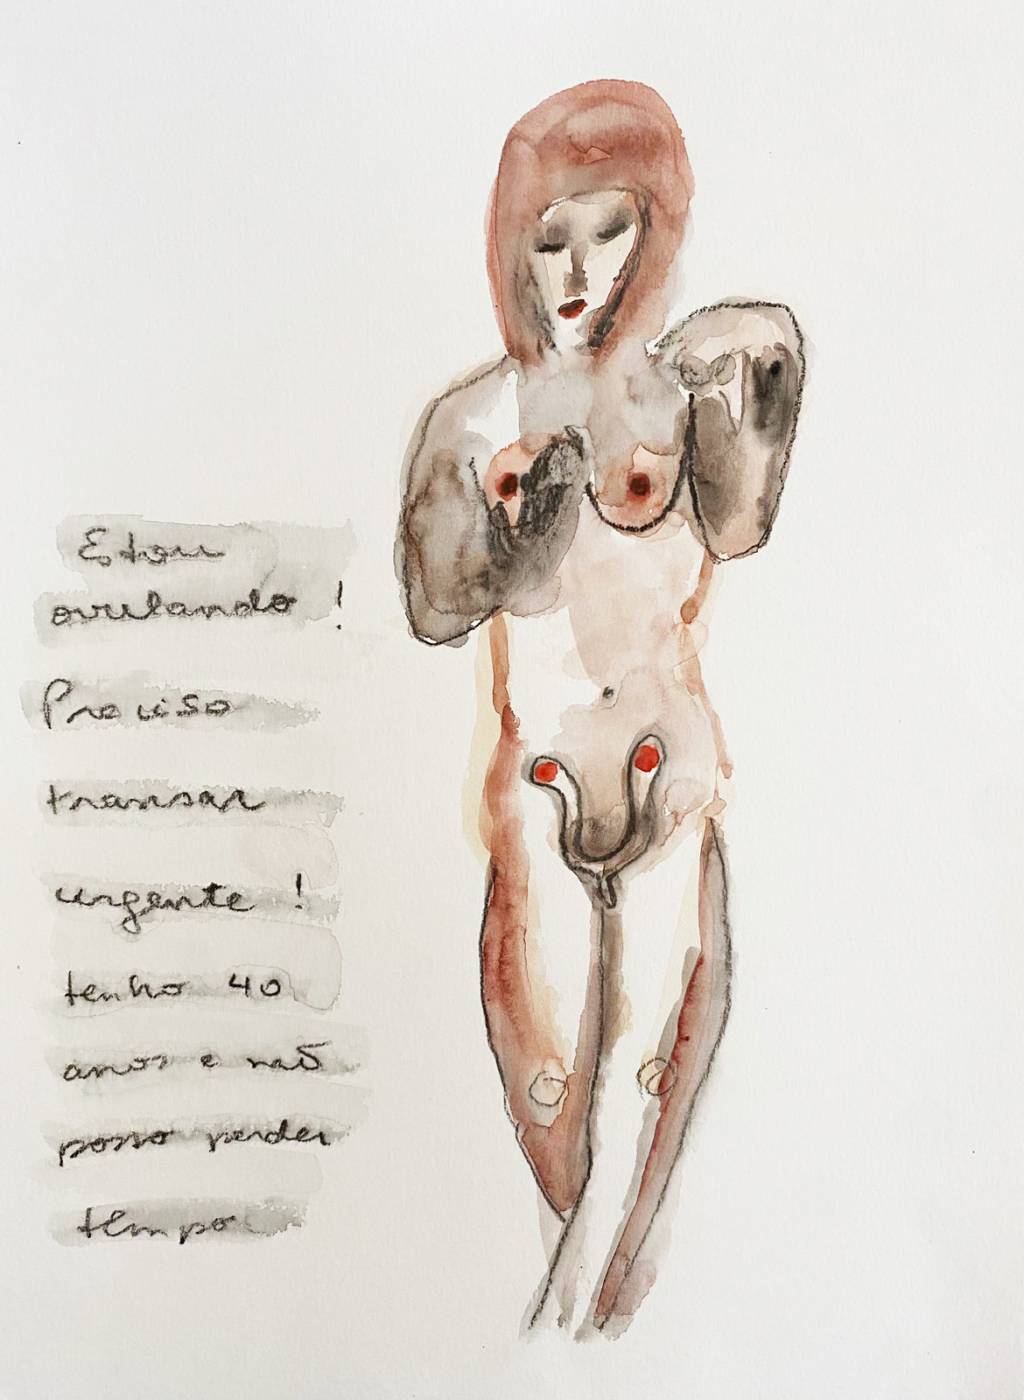 Estou
ovulando !
Preciso
transar
urgente !
tenho 40
anos e não
posso perder
tempo